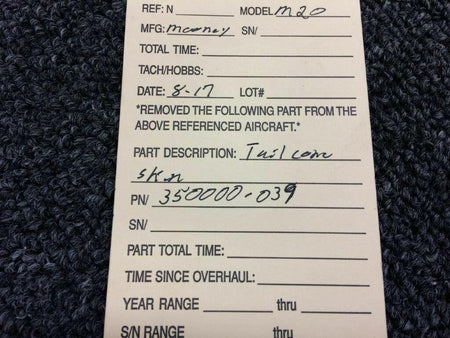 REF: N MODEL M20
MFG: mooney SN/
TOTAL TIME:
TACH/HOBBS:
DATE: 8-17 LOT#
*REMOVED THE FOLLOWING PART FROM THE
ABOVE REFERENCED AIRCRAFT.*
PART DESCRIPTION: Tail cone
skn
PN/ 350000-039
SN/
PART TOTAL TIME:
TIME SINCE OVERHAUL:
YEAR RANGE thru
S/N RANGE thru